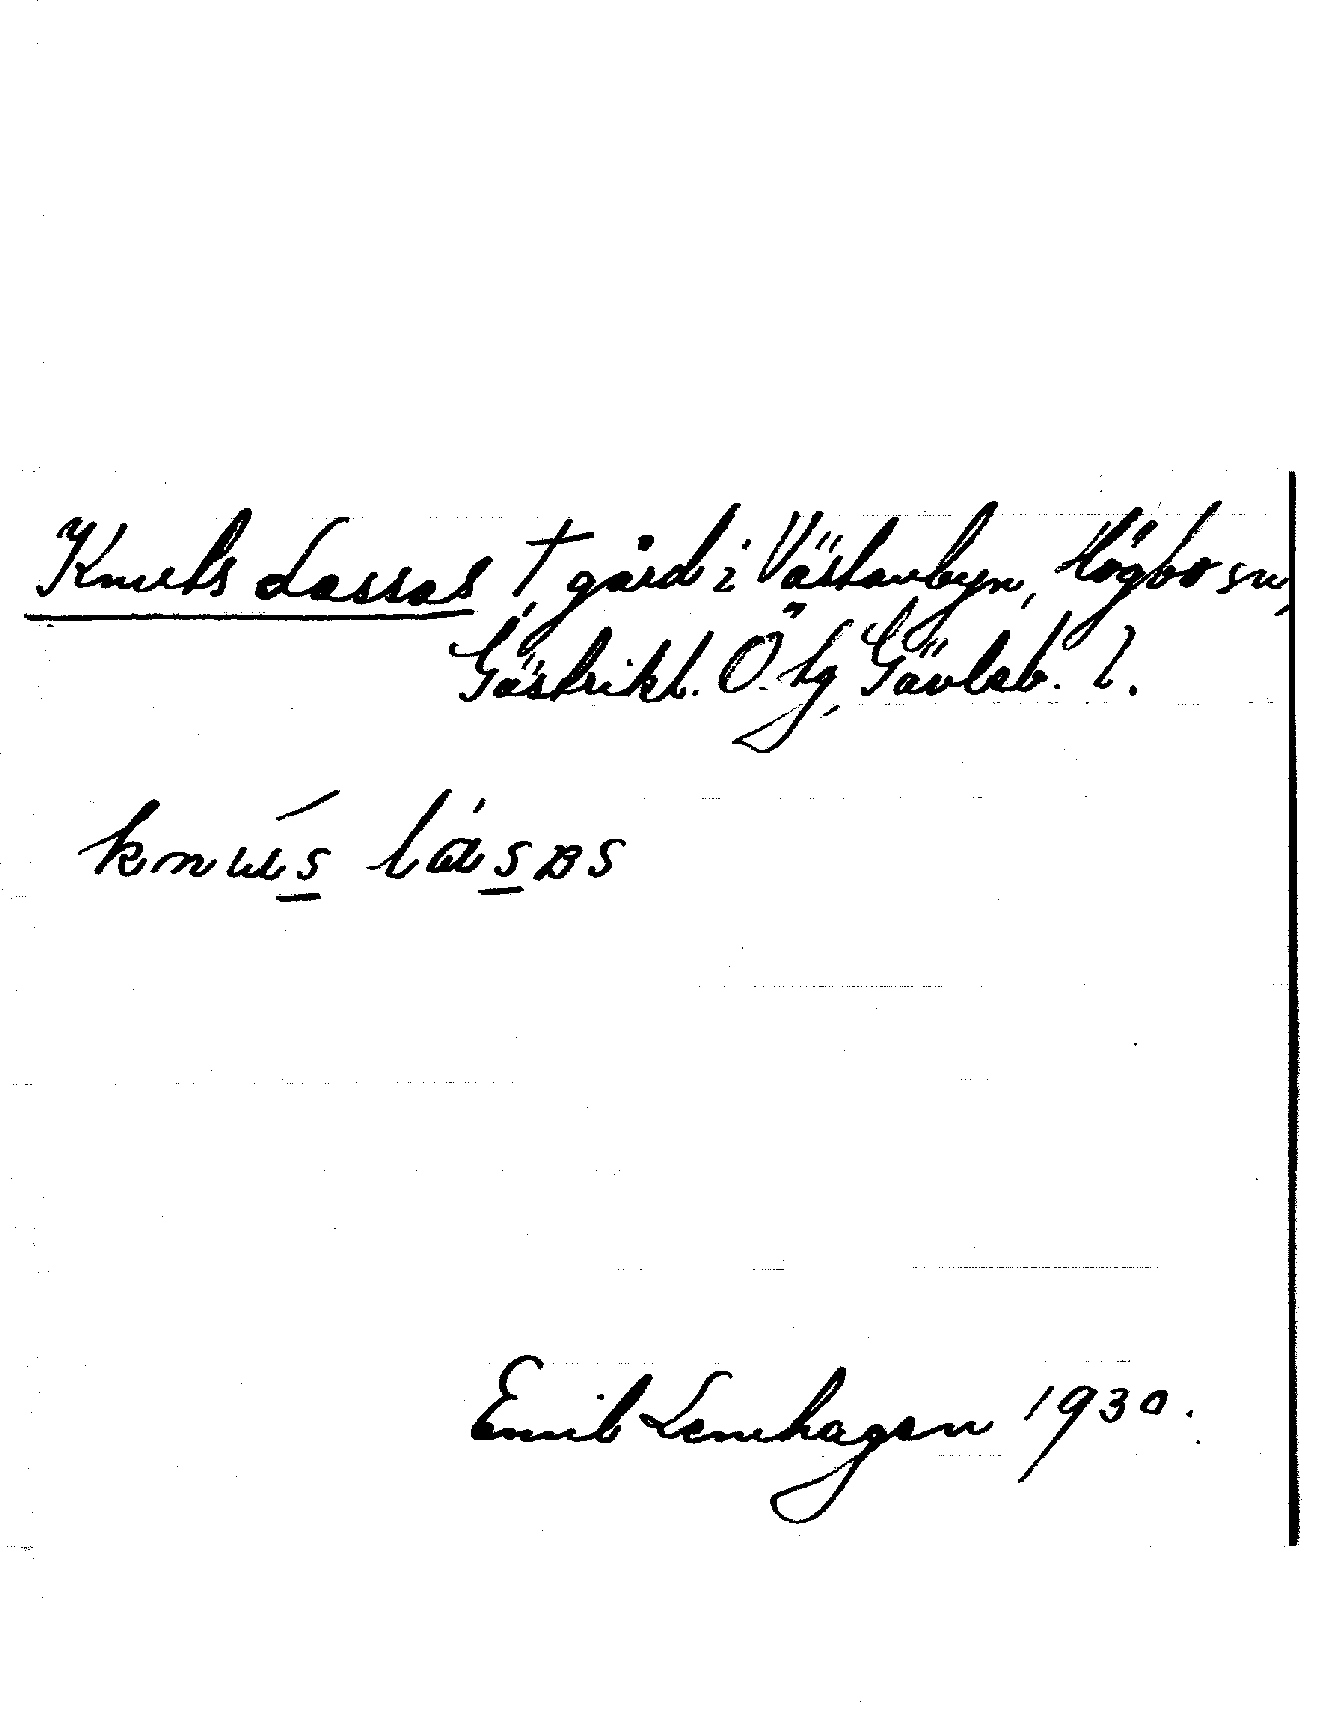 Knuts Lassas, † gård i Västanbyn, Högbo sn,
Gästrikl. Ö. tg, Gävleb. l.
knús lásas
Emil Lenhagen 1930.